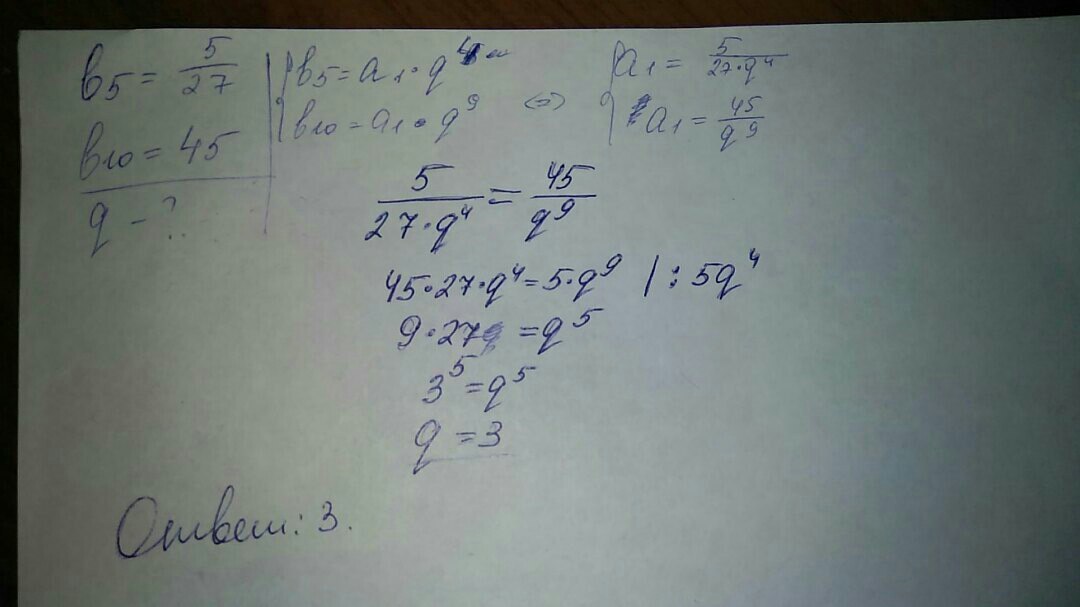 b₅ = 5/27
b₁₀ = 45
q - ?
b₅ = a₁ · q⁴
b₁₀ = a₁ · q⁹
⇔
a₁ = 5/(27 · q⁴)
a₁ = 45/q⁹
5/(27 · q⁴) = 45/q⁹
45 · 27 · q⁴ = 5 · q⁹ | : 5q⁴
9 · 27 = q⁵
3⁵ = q⁵
q = 3
Ответ: 3.